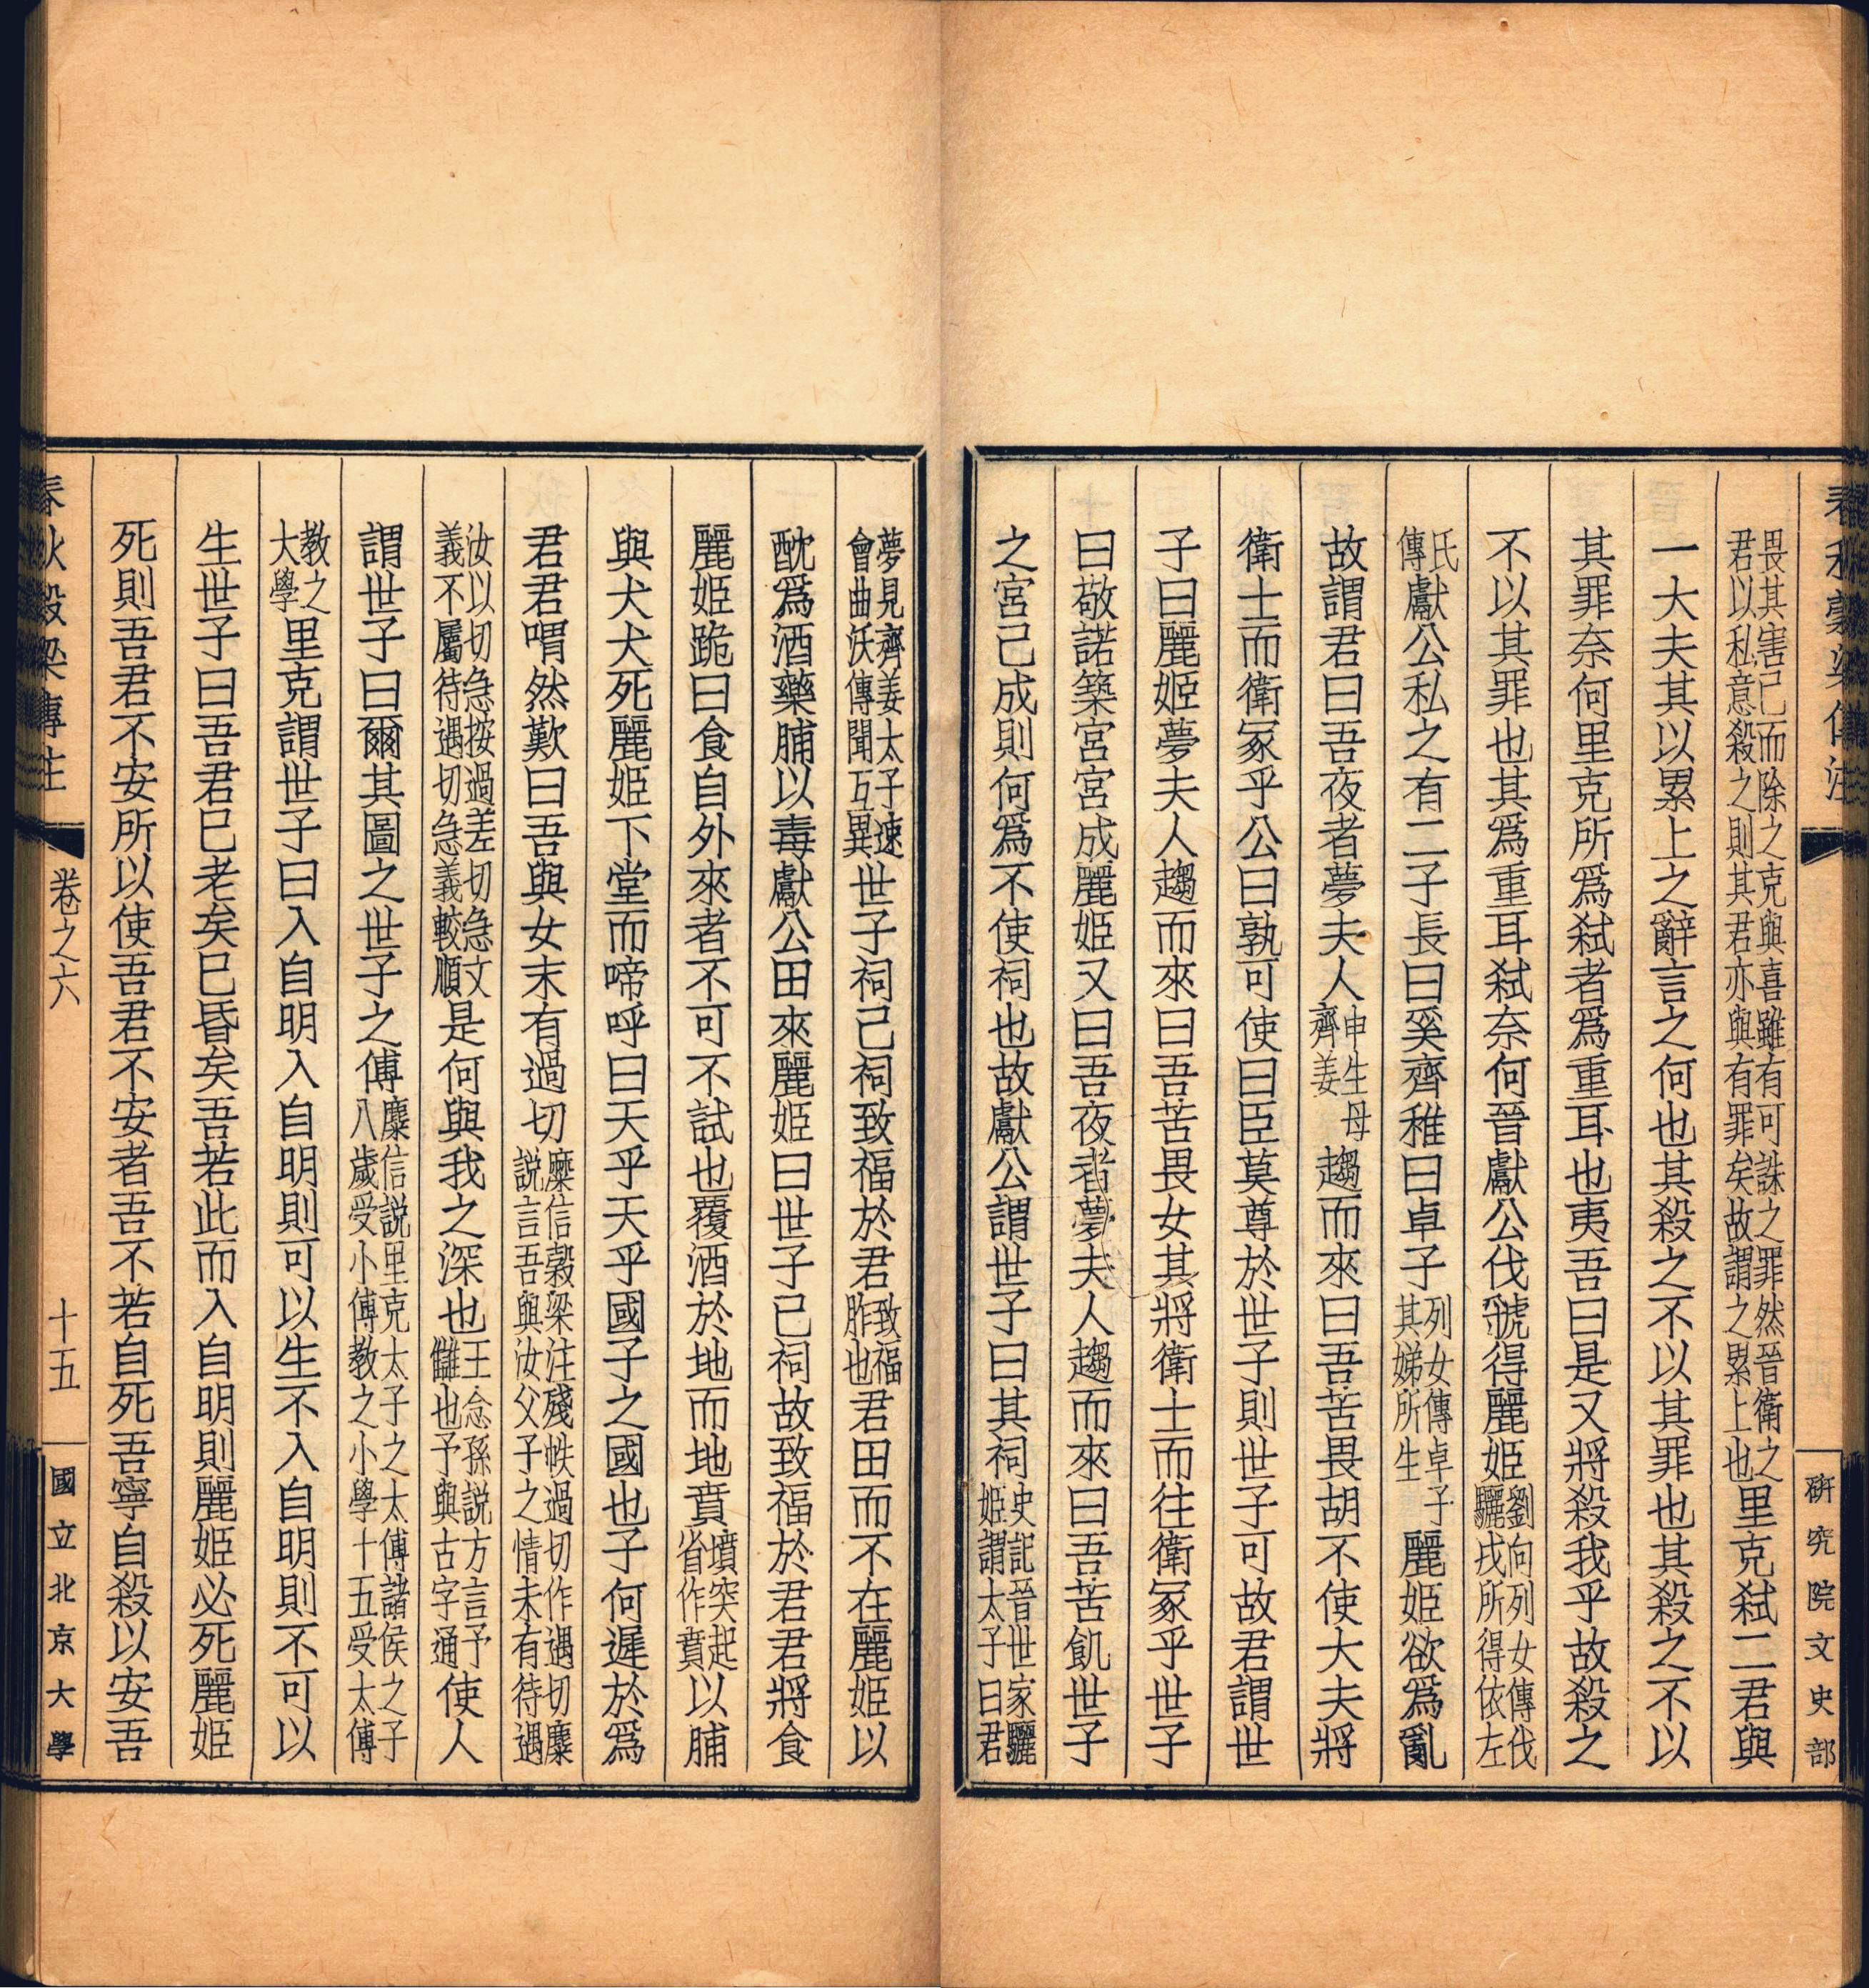 春秋穀梁傳注
研究院文史部
畏其害己而除之克與喜雖有可誅之罪然晉衛之
君以私意殺之則其君亦與有罪矣故謂之累上也
里克弒二君與
一大夫其以累上之辭言之何也其殺之不以其罪也其殺之不以
其罪奈何里克所爲弒者爲重耳也夷吾曰是又將殺我乎故殺之
不以其罪也其爲重耳弒奈何晉獻公伐虢得麗姬
劉向列女傳伐
驪戎所得依左
氏
傳
獻公私之有二子長曰奚齊稚曰卓子
列女傳卓子
其娣所生
麗姬欲爲亂
故謂君曰吾夜者夢夫人
申生母
齊姜
趨而來曰吾苦畏胡不使大夫將
衛士而衛冢乎公曰孰可使曰臣莫尊於世子則世子可故君謂世
子曰麗姬夢夫人趨而來曰吾苦畏女其將衛士而往衛冢乎世子
曰敬諾築宮宮成麗姬又曰吾夜者夢夫人趨而來曰吾苦飢世子
之宮己成則何爲不使祠也故獻公謂世子曰其祠
史記晉世家驪
姬謂太子曰君
夢見齊姜太子速
會曲沃傳聞互異
世子祠己祠致福於君
致福
胙也
君田而不在麗姬以
酖爲酒藥脯以毒獻公田來麗姬曰世子己祠故致福於君君將食
麗姬跪曰食自外來者不可不試也覆酒於地而地賁
墳突起
省作賁
以脯
與犬犬死麗姬下堂而啼呼曰天乎天乎國子之國也子何遲於爲
君君喟然歎曰吾與女末有過切
麋信穀梁注殘帙過切作遇切麋
説言吾與汝父子之情未有待遇
汝以切急按過差切急文
義不屬待遇切急義較順
是何與我之深也
王念孫説方言予
讎也予與古字通
使人
謂世子曰爾其圖之世子之傅
麋信説里克太子之太傅諸侯之子
八歲受小傅教之小學十五受太傅
教之
大學
里克謂世子曰入自明入自明則可以生不入自明則不可以
生世子曰吾君已老矣已昏矣吾若此而入自明則麗姬必死麗姬
死則吾君不安所以使吾君不安者吾不若自死吾寧自殺以安吾
春秋穀梁傳注
卷之六
十五
國立北京大學